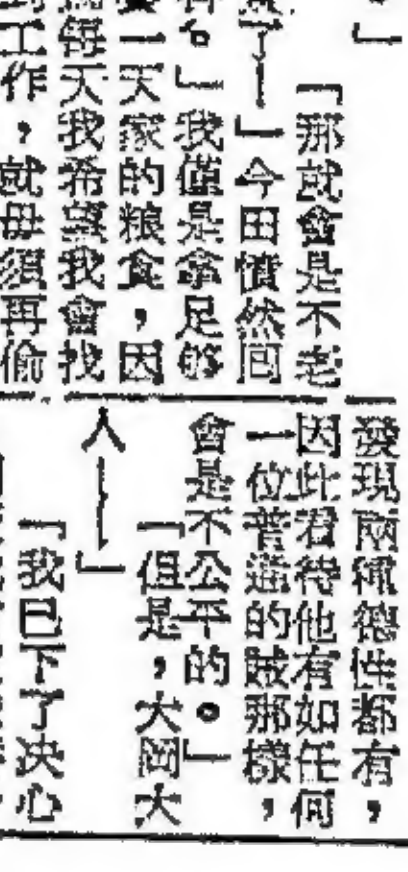 。」
「那就會是不老
了—」今田憤然回
。」我僅是拿足够
一天家的粮食，因
每天我希望我會找
到工作，就毋須再偷
發現兩種德性都有，
因此看待他有如任何
一位普通的賊那樣，
會是不公平的。」
「但是，大岡大
人——」
「我已下了决心